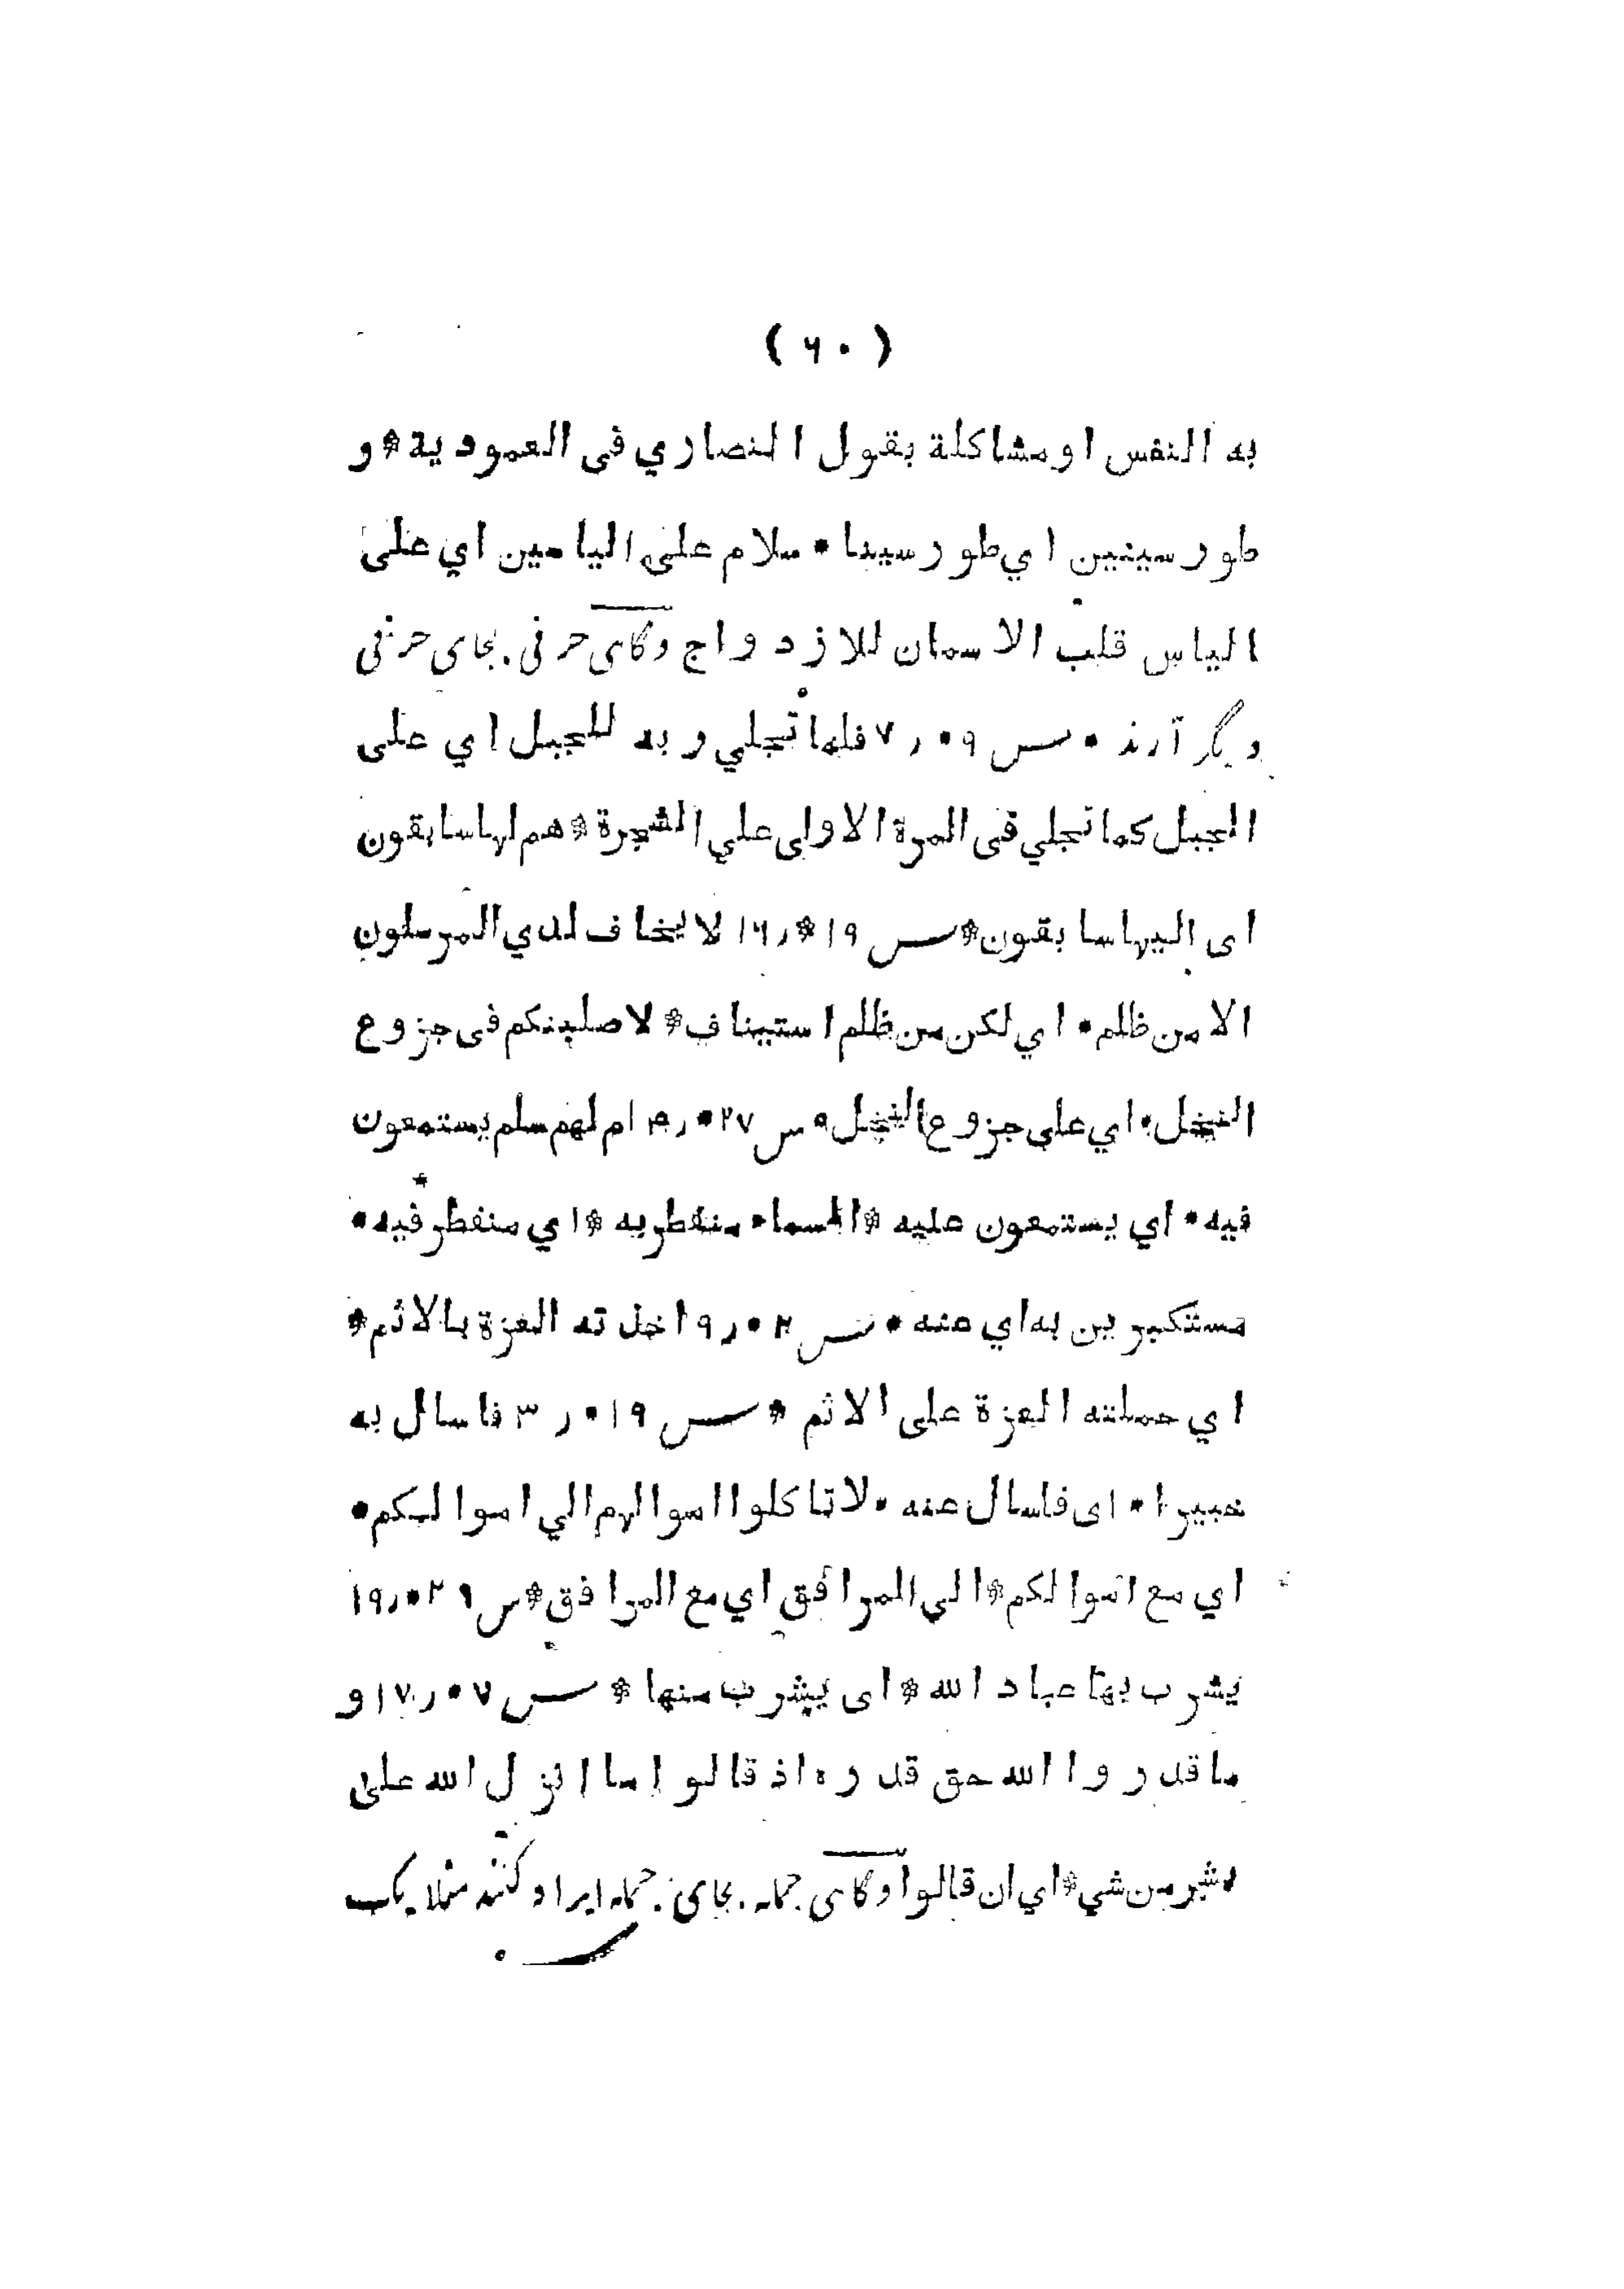 ( ۶۰ )
به النفس او مشاكلة بقول النصاري فى العمودية * و
طور سينين اي طور سينا * سلام على الياسين اي على
الياس قلب الاسمان للازدواج وگاہی حرفی بجای حرفی
دیگر آرند * س ۹ * ر ۷ فلما تجلي ربه للجبل اي على
الجبل كما تجلي فى المرة الاولى علي الشجرة * هم لها سابقون
اى اليها سابقون * س ۱۹ * ر ۱۶ لا يخاف لدي المرسلون
الا من ظلم * اي لكن من ظلم استيناف * لاصلبنكم فى جزوع
النخل * اي على جزوع النخل * س ۲۷ * ر ۴ ام لهم سلم يستمعون
فيه * اي يستمعون عليه * السماء منفطر به * اي منفطر فيه *
مستكبرين به اي عنه * س ۲ * ر ۹ اخذته العزة بالاثم *
اي حملته العزة على الاثم * س ۱۹ * ر ۳ فاسال به
خبيرا * اى فاسال عنه * لا تاكلوا اموالهم الي اموالكم *
اي مع اموالكم * الي المرافق اي مع المرافق * س ۲۹ * ر ۱۹
يشرب بها عباد الله * اى يشرب منها * س ۷ * ر ۱۷ و
ما قدروا الله حق قدره اذ قالوا ما انزل الله على
بشر من شي * اي ان قالوا وگاہی جملہ بجای جملہ ایراد کنند مثلا یک